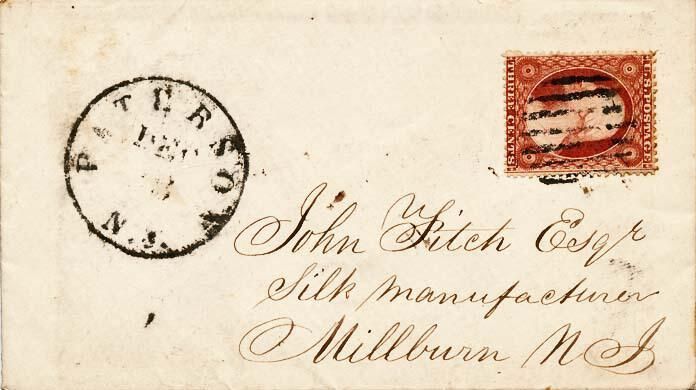 PATERSON
N.J.
U.S. POSTAGE.
THREE CENTS.
John Fitch Esqr
Silk manufacturer
Millburn N J